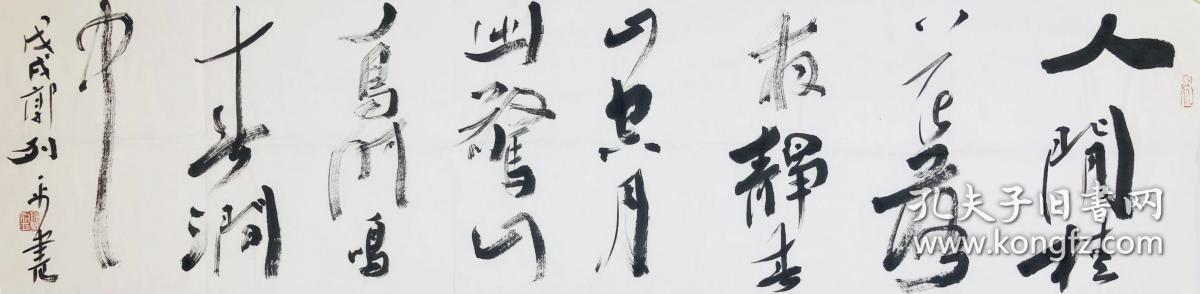 人閒桂
花落
夜靜春
山空月
出驚山
鳥時鳴
春澗
中
戊戌郭列書
孔夫子旧书网
www.kongfz.com